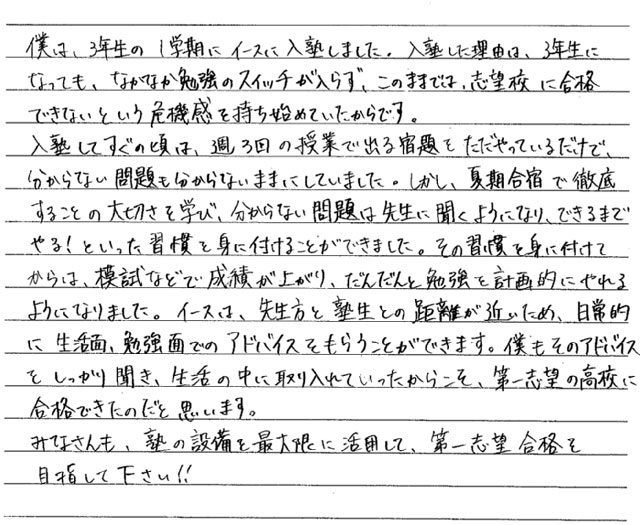 僕は、3年生の1学期にイースに入塾しました。入塾した理由は、3年生に
なっても、なかなか勉強のスイッチが入らず、このままでは、志望校に合格
できないという危機感を持ち始めていたからです。
入塾してすぐの頃は、週3回の授業で出る宿題をただやっているだけで、
分からない問題も分からないままにしていました。しかし、夏期合宿で徹底
することの大切さを学び、分からない問題は先生に聞くようになり、できるまで
やる!といった習慣を身に付けることができました。その習慣を身に付けて
からは、模試などで成績が上がり、だんだんと勉強を計画的にやれる
ようになりました。イースは、先生方と塾生との距離が近いため、日常的
に生活面、勉強面でのアドバイスをもらうことができます。僕もそのアドバイス
をしっかり聞き、生活の中に取り入れていったからこそ、第一志望の高校に
合格できたのだと思います。
みなさんも、塾の設備を最大限に活用して、第一志望合格を
目指して下さい!!